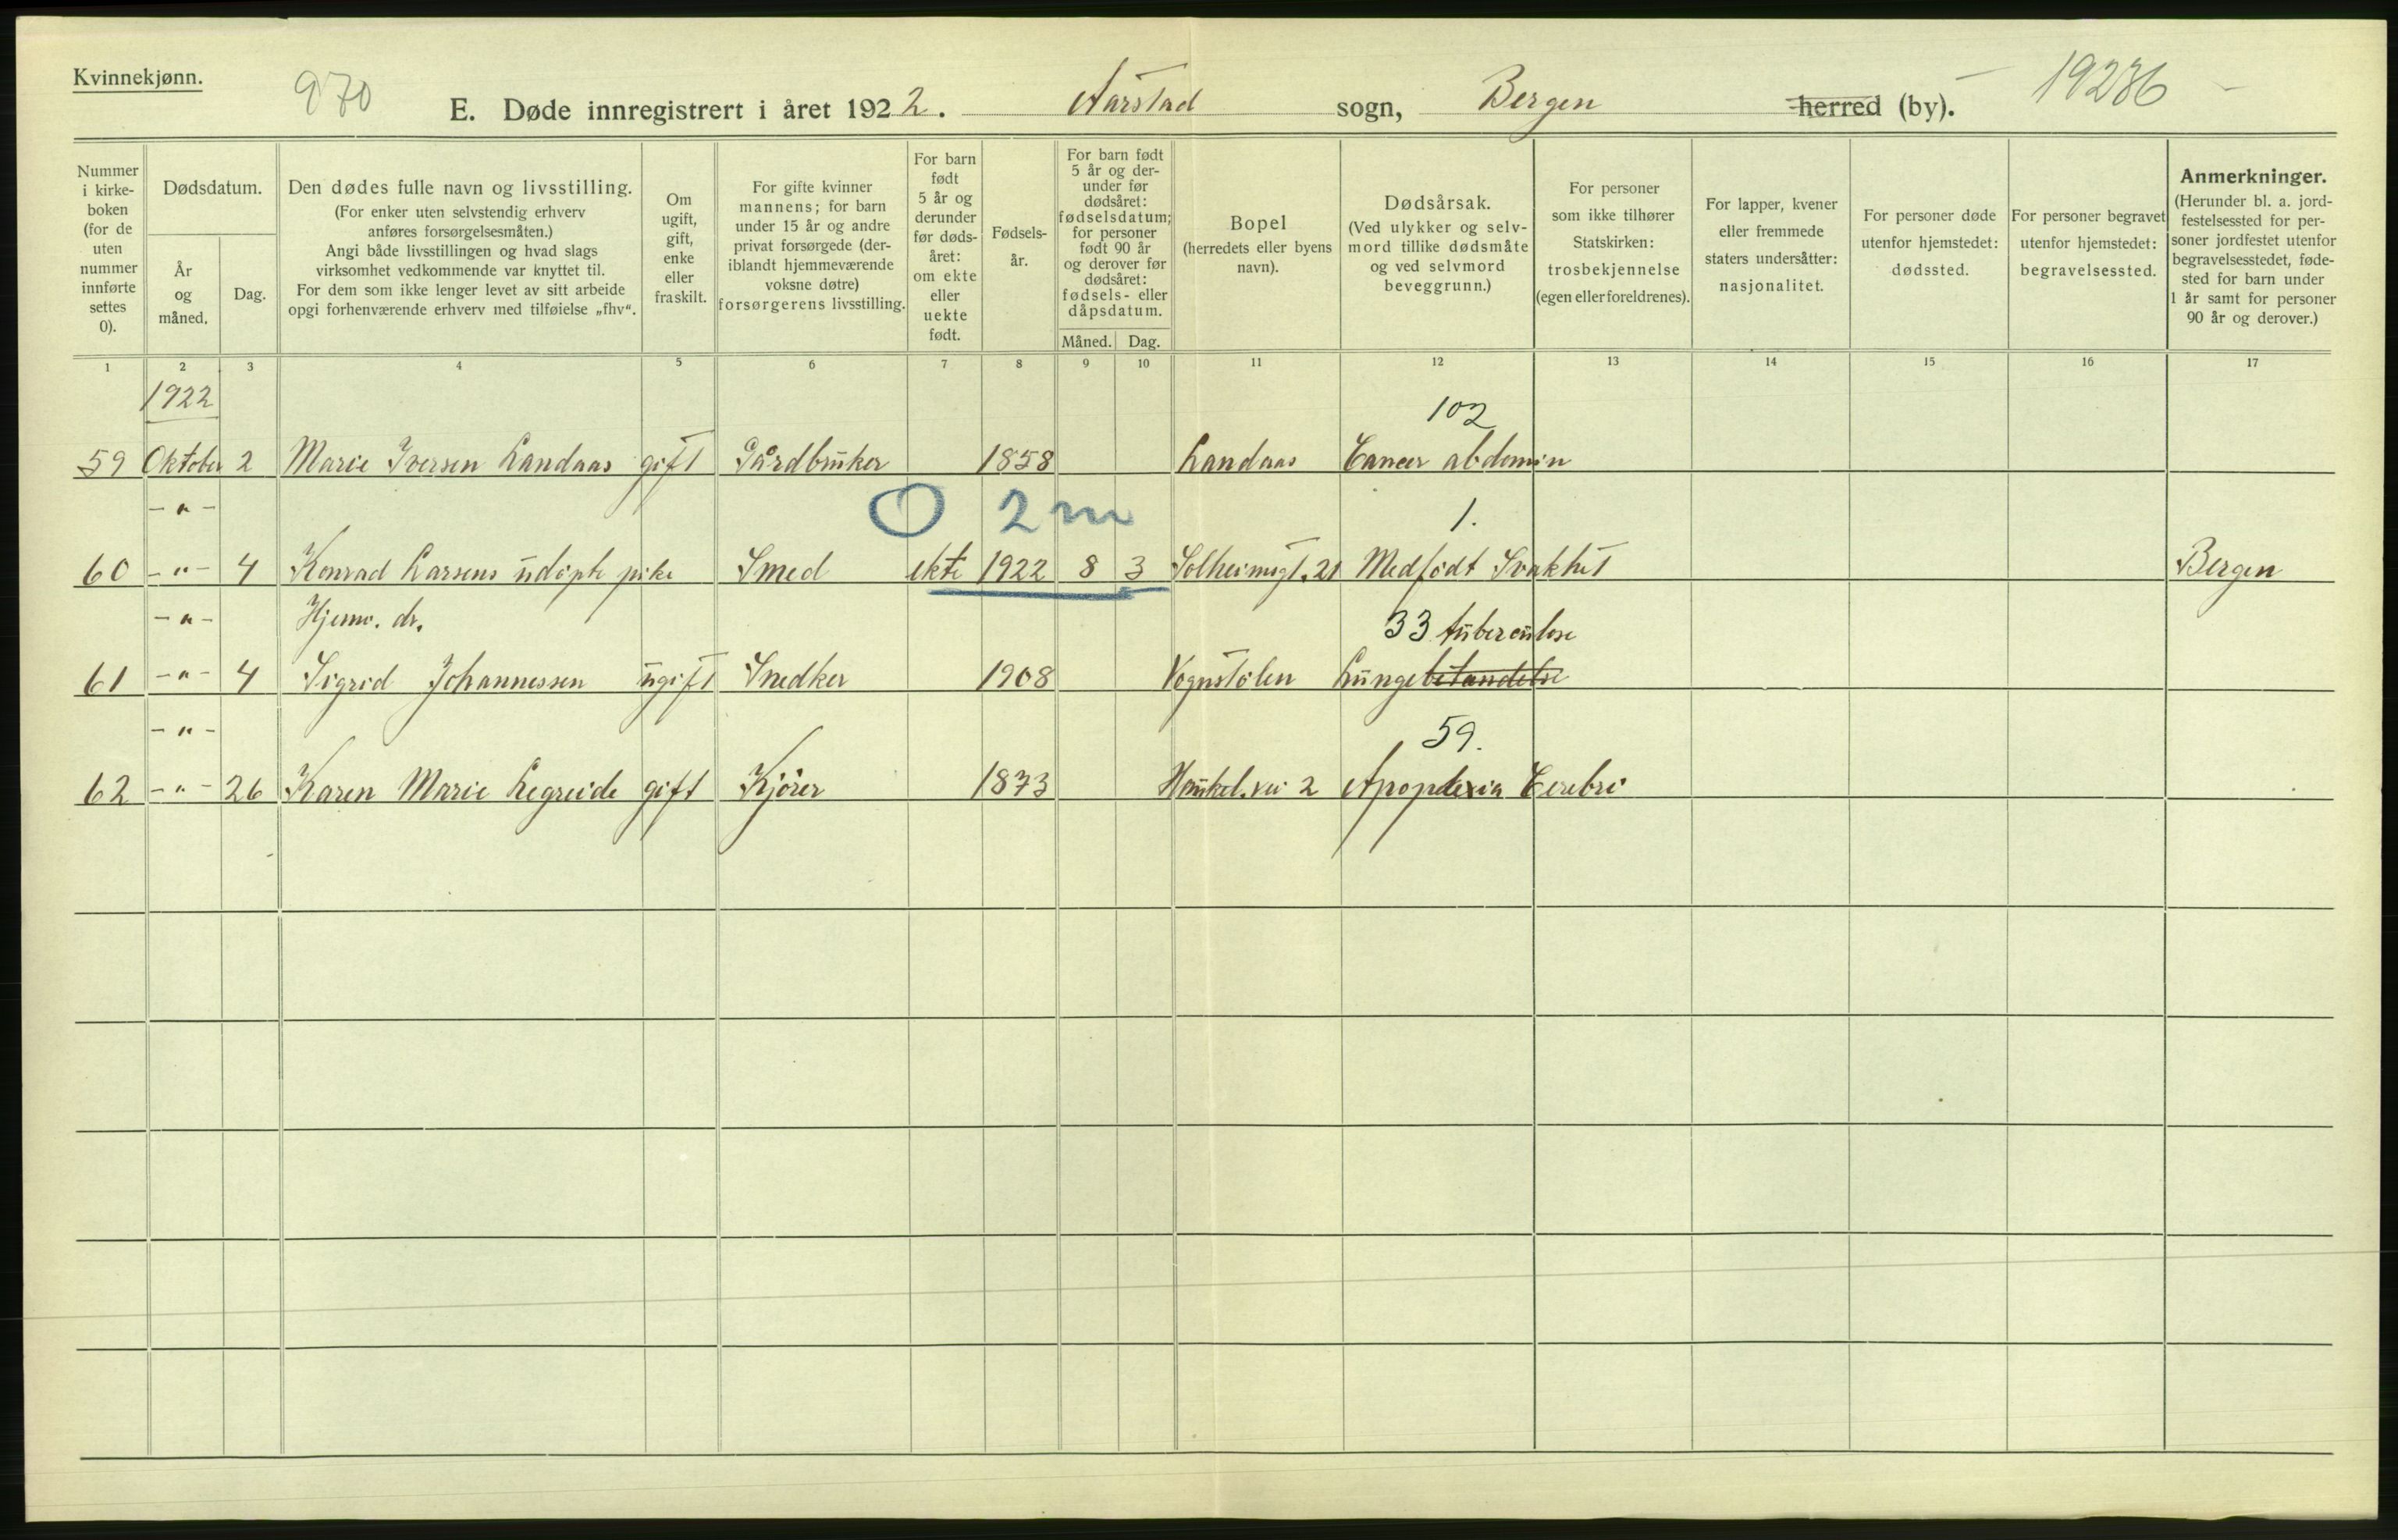 Kvinnekjønn.
970
E. Døde innregistrert i året 1922. Aarstad sogn, Bergen herred (by).
19286
Nummer i kirke- boken (for de uten nummer innførte settes 0).
Dødsdatum.
År og måned.
Dag.
Den dødes fulle navn og livsstilling.
(For enker uten selvstendig erhverv
anføres forsørgelsesmåten.)
Angi både livsstillingen og hvad slags
virksomhet vedkommende var knyttet til.
For dem som ikke lenger levet av sitt arbeide
opgi forhenværende erhverv med tilføielse „fhv“.
Om ugift, gift, enke eller fraskilt.
For gifte kvinner
mannens; for barn
under 15 år og andre
privat forsørgede (der-
iblandt hjemmeværende
voksne døtre)
forsørgerens livsstilling.
For barn født 5 år og derunder før døds- året: om ekte eller uekte født.
Fødsels- år.
For barn født
5 år og der-
under før
dødsåret:
fødselsdatum;
for personer
født 90 år
og derover før
dødsåret:
fødsels- eller
dåpsdatum.
Måned. Dag.
Bopel
(herredets eller byens
navn).
Dødsårsak.
(Ved ulykker og selv-
mord tillike dødsmåte
og ved selvmord
beveggrunn.)
For personer
som ikke tilhører
Statskirken:
trosbekjennelse
(egen eller foreldrenes).
For lapper, kvener
eller fremmede
staters undersåtter:
nasjonalitet.
For personer døde
utenfor hjemstedet:
dødssted.
For personer begravet
utenfor hjemstedet:
begravelsessted.
Anmerkninger.
(Herunder bl. a. jord-
festelsessted for per-
soner jordfestet utenfor
begravelsesstedet, føde-
sted for barn under
1 år samt for personer
90 år og derover.)
1 2 3 4 5 6 7 8 9 10 11 12 13 14 15 16 17
1922
102
59 Oktober 2 Marie Iversen Landaas gift Gårdbruker 1858 Landaas Cancer abdomin
-"- O 2 m 1.
60 -"- 4 Konrad Larsens udøpte pike Smed ekte 1922 8 3 Solheimsgt. 21 Medfødt Svakhet Bergen
-"- Hjemv. dr. 33 tuberculose
61 -"- 4 Sigrid Johannessen ugift Snedker 1908 Vognstølen Lungebetændelse
-"- 59.
62 -"- 26 Karen Marie Legreide gift Kjører 1873 Haukel.vei 2 Apoplexia Cerebri